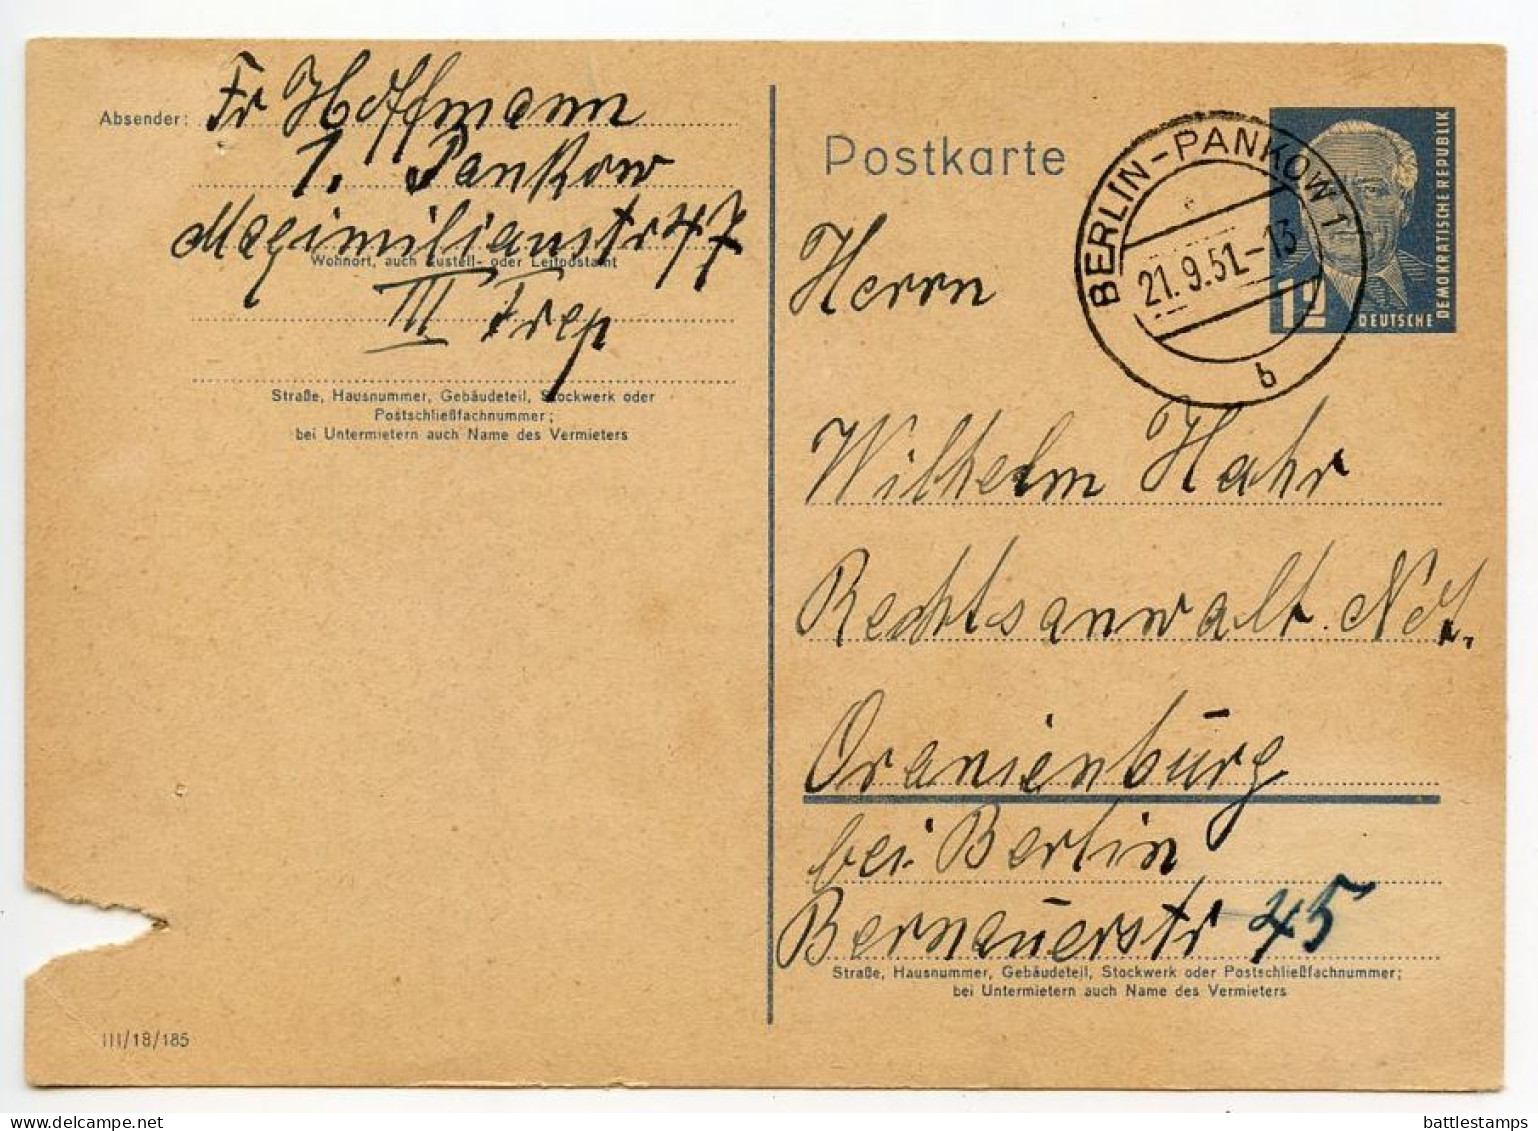 Absender: Fr Hoffmann
1. Pankow
Maximilianstr 47
Wohnort, auch Zustell- oder Leitpostamt
III Trep
Straße, Hausnummer, Gebäudeteil, Stockwerk oder
Postschließfachnummer;
bei Untermietern auch Name des Vermieters
III/18/185
Postkarte
BERLIN-PANKOW 1
21.9.51.-13
b
12
DEUTSCHE
DEMOKRATISCHE REPUBLIK
Herrn
Wilhelm Hahr
Rechtsanwalt Not.
Oranienburg
bei Berlin
Bernauerstr 45
Straße, Hausnummer, Gebäudeteil, Stockwerk oder Postschließfachnummer;
bei Untermietern auch Name des Vermieters
delcampe.net
battlestamps